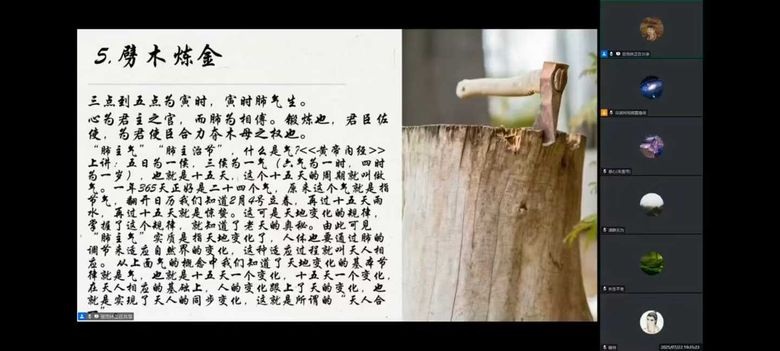 5. 劈木炼金
三点到五点为寅时，寅时肺气生。
心为君主之官，而肺为相傅。锻炼也，君臣佐
使，为君使臣合力夺木母之权也。
“肺主气”“肺主治节”，什么是气?<<黄帝内经>>
上讲：五日为一候，三候为一气（六气为一时，四时
为一岁），也就是十五天，这个十五天的周期就叫做
气。一年365天正好是二十四个气，原来这个气就是指
节气，翻开日历我们知道2月4号立春，再过十五天雨
水，再过十五天就是惊蛰。这可是天地变化的规律，
掌握了这个规律，就知道了老天的奥秘。由此可见
“肺主气”实质是指天地变化了，人体也要通过肺的
调节来适应自然界的变化，这种适应过程就叫天人相
应。从上面气的概念中我们知道了天地变化的基本节
律就是气，也就是十五天一个变化，十五天一个变化，
在天人相应的基础上，人的变化跟上了天的变化，也
就是实现了天人的同步变化，这就是所谓的“天人合
2025/07/22 19:35:23